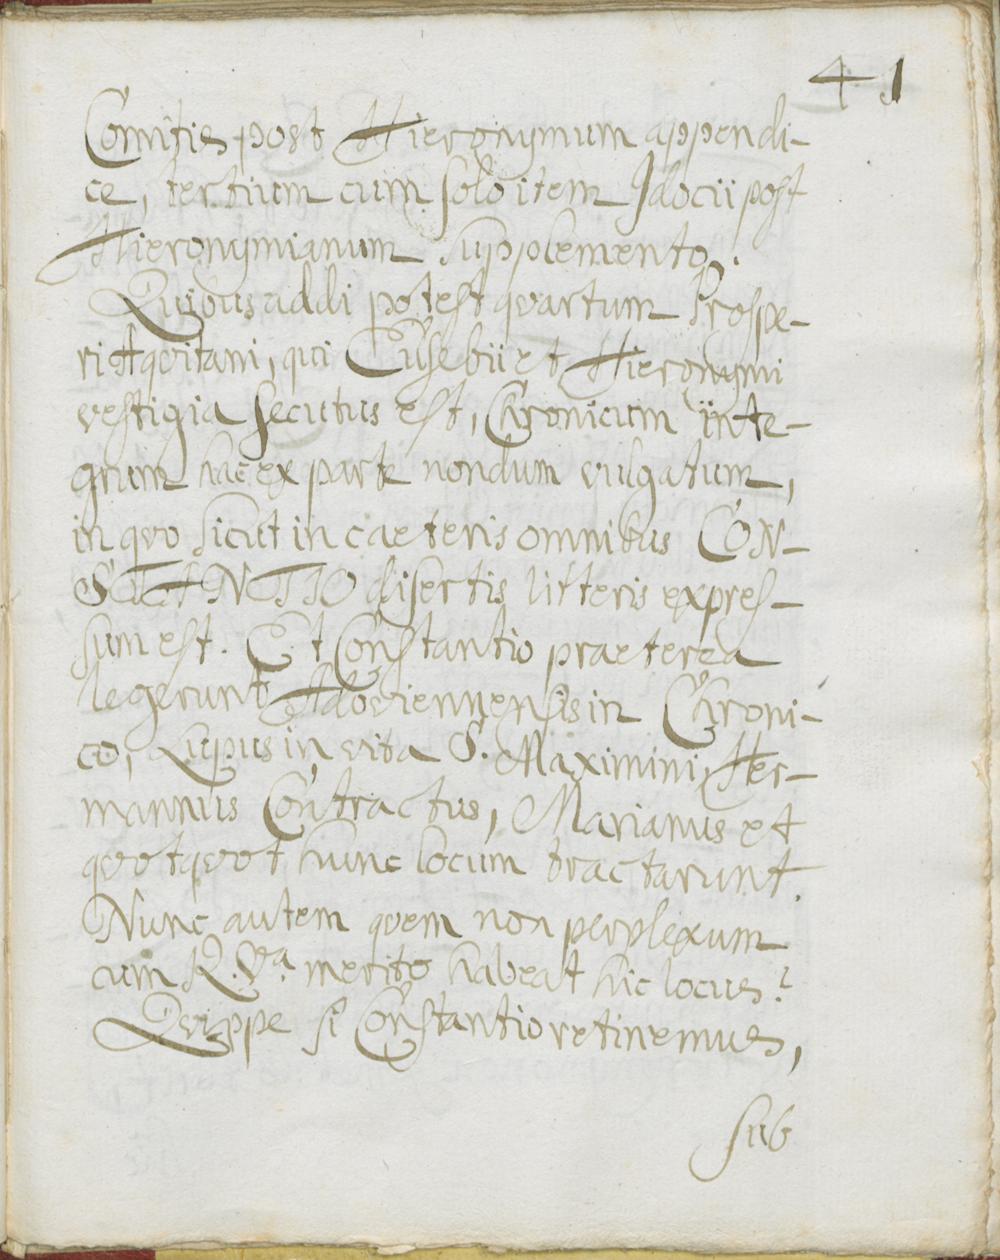 41
Comitis post Hieronymum appendi-
ce, tertium cum solo item Idacii post
Hieronymianum supplemento.
Quibus addi potest quartum Prospe-
ri Aqvitani, qui Eusebii et Hieronymi
vestigia secutus est, Chronicum inte-
grum hac ex parte nondum vulgatum,
in qvo sicut in caeteris omnibus CON-
STANTIO disertis litteris expres-
sum est. Et Constantio praeterea
legerunt Ado Viennensis in Chroni-
co, Lupus in vita S. Maximini, Her-
mannus Contractus, Marianus et
qvotqvot hunc locum tractarunt.
Nunc autem qvem non perplexum
cum R. Va merito habeat hic locus?
Qvippe si Constantio retinemus,
sub